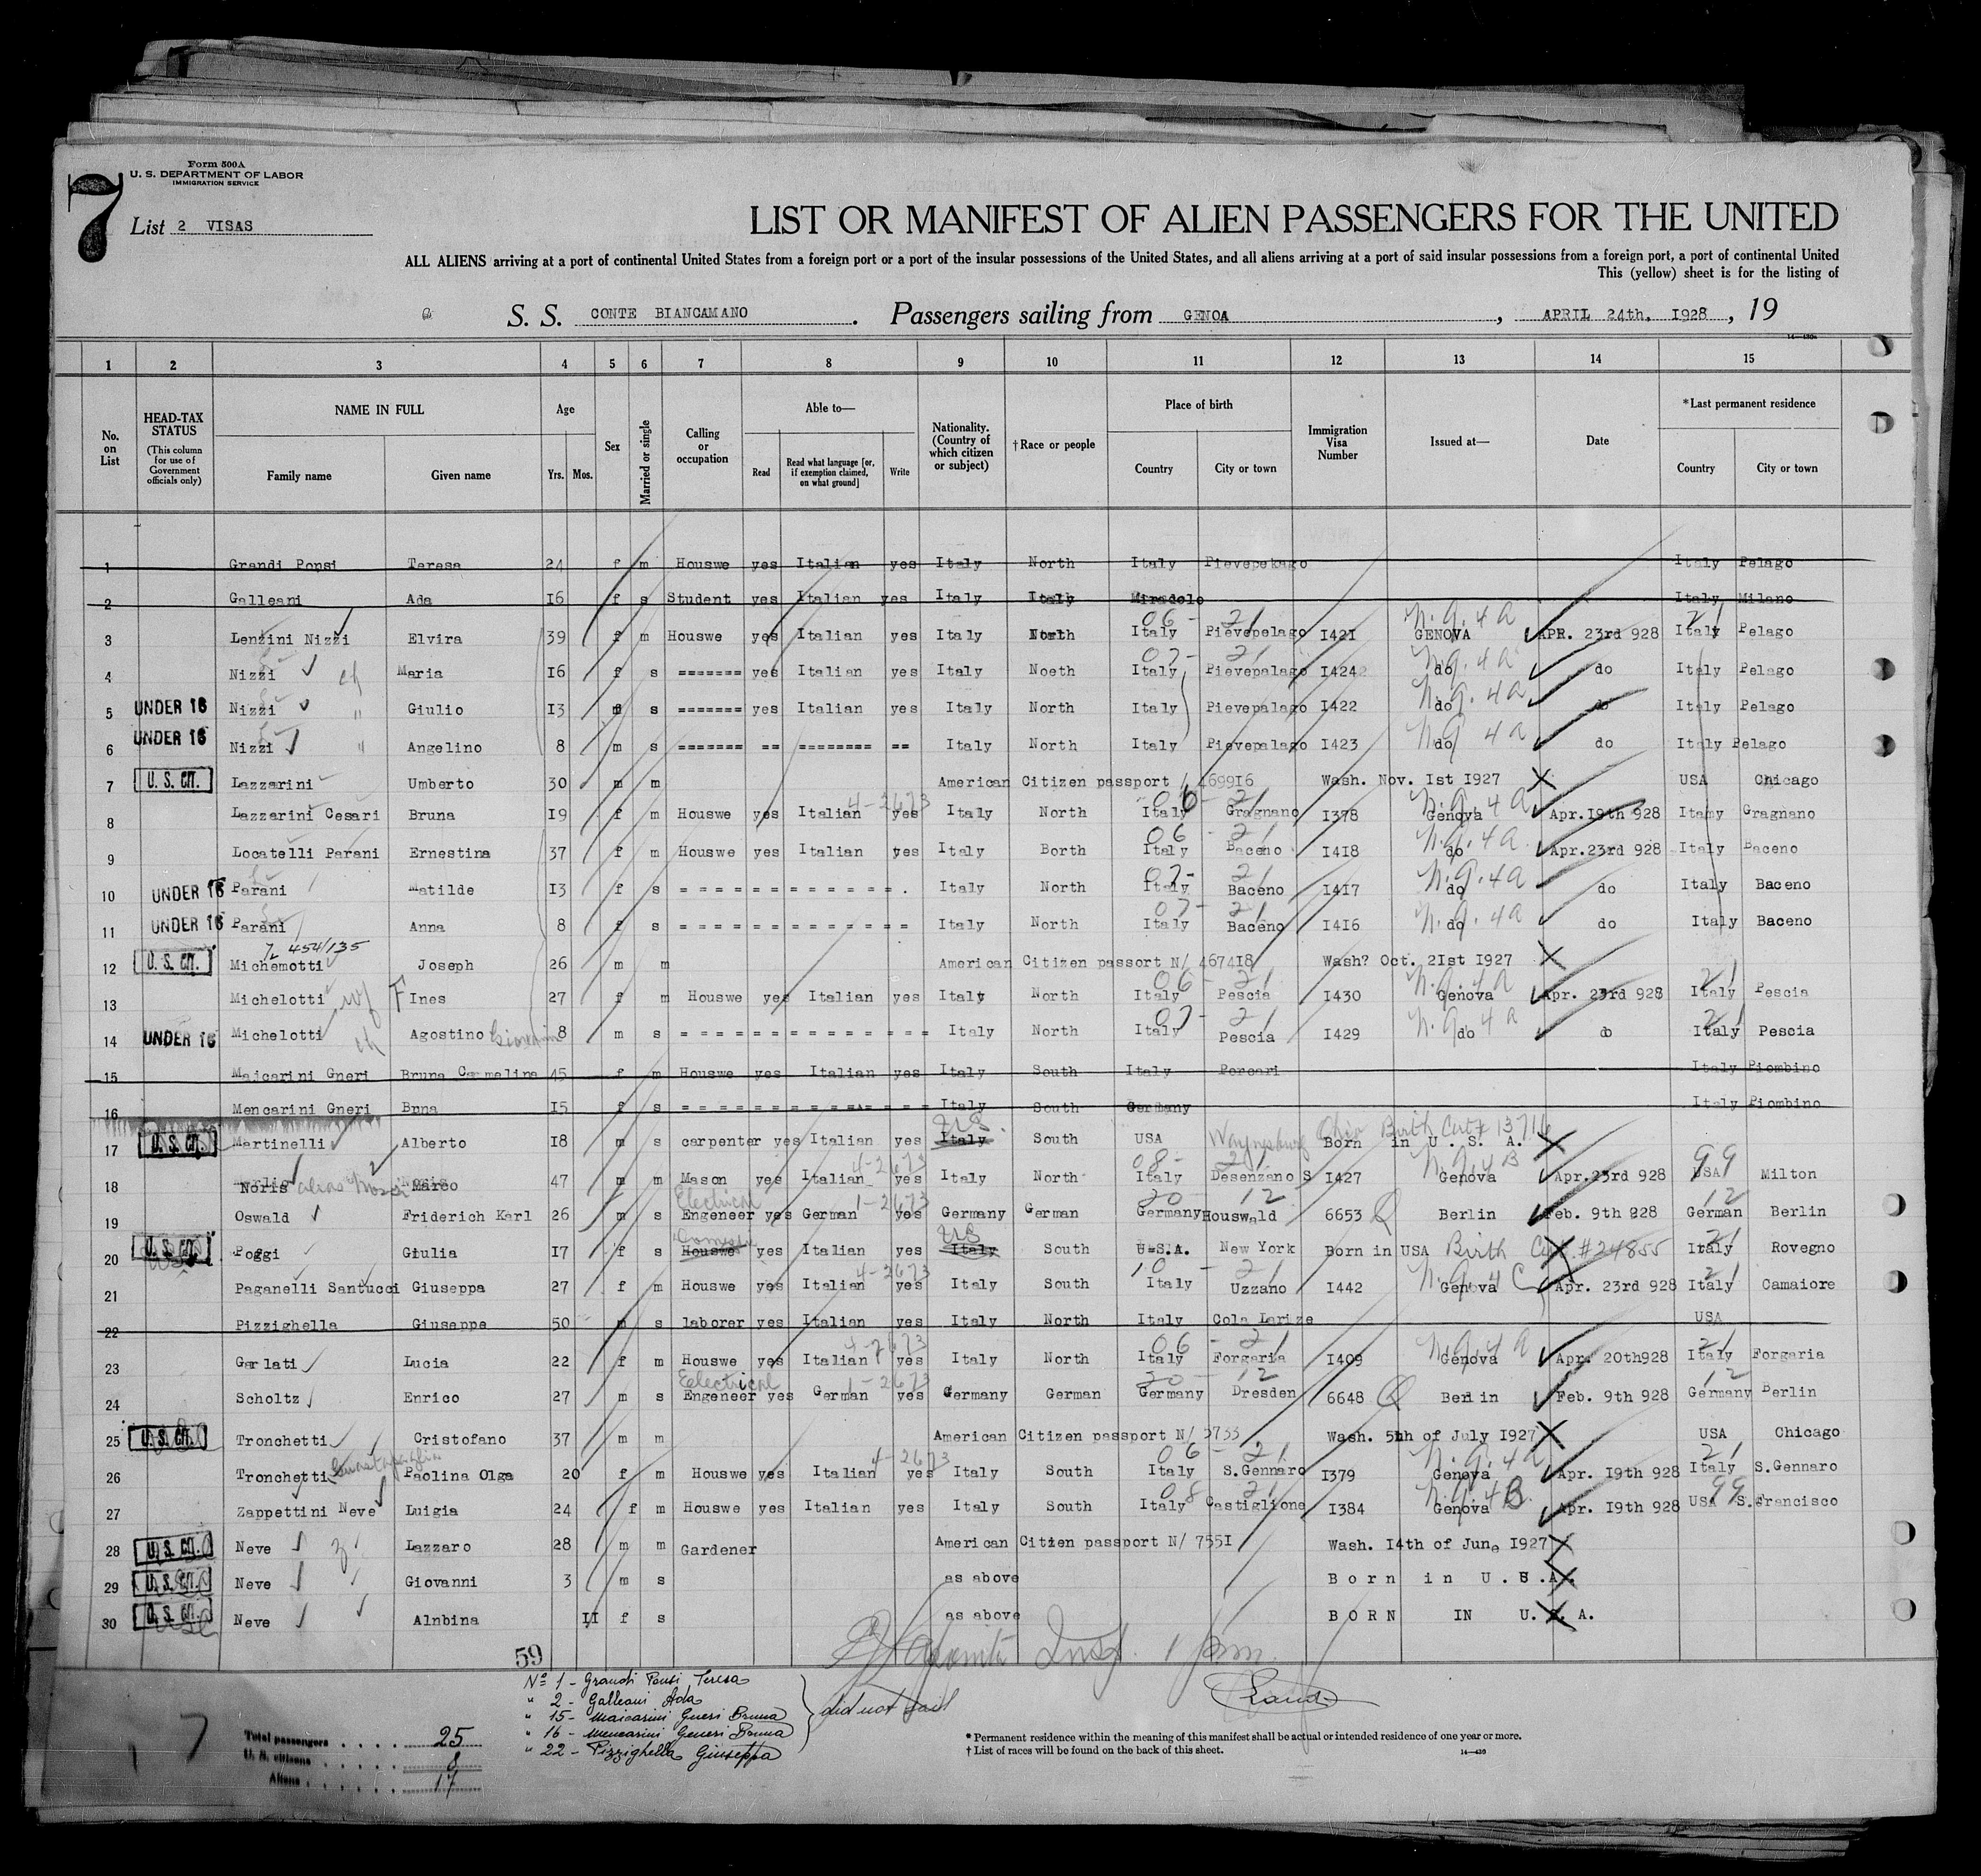 7
Form 500A
U. S. DEPARTMENT OF LABOR
IMMIGRATION SERVICE
List 2 VISAS
LIST OR MANIFEST OF ALIEN PASSENGERS FOR THE UNITED
ALL ALIENS arriving at a port of continental United States from a foreign port or a port of the insular possessions of the United States, and all aliens arriving at a port of said insular possessions from a foreign port, a port of continental United
This (yellow) sheet is for the listing of
S. S. CONTE BIANCAMANO. Passengers sailing from GENOA, APRIL 24th, 1928, 19
14—430a
1 2 3 4 5 6 7 8 9 10 11 12 13 14 15
No. on List
HEAD-TAX STATUS (This column for use of Government officials only)
NAME IN FULL
Family name Given name
Age Yrs. Mos.
Sex
Married or single
Calling or occupation
Able to—
Read
Read what language [or, if exemption claimed, on what ground]
Write
Nationality. (Country of which citizen or subject)
†Race or people
Place of birth
Country City or town
Immigration Visa Number
Issued at—
Date
*Last permanent residence
Country City or town
1 Grandi Popsi Teresa 24 f m Houswe yes Italian yes Italy North Italy Pievepekago Italy Pelago
2 Galleani Ada I6 f s Student yes Italian yes Italy Italy Miradolo Italy Milano
3 Lenzini Nizzi Elvira 39 f m Houswe yes Italian yes Italy North Italy 06 - 21 Pievepelago I42I GENOVA N.Q. 4a APR. 23rd 928 Italy 21 Pelago
4 Nizzi ch Maria I6 f s ======= yes Italian yes Italy Noeth Italy 07- 21 Pievepalago I424 do N.Q. 4a do Italy Pelago
5 UNDER 16 Nizzi " Giulio I3 m s ======= yes Italian yes Italy North Italy Pievepalago I422 do N.Q. 4a do Italy Pelago
6 UNDER 16 Nizzi " Angelino 8 m s ======= == ======== == Italy North Italy Pievepalago I423 do N.Q. 4a do Italy Pelago
7 U. S. CIT. Lazzarini Umberto 30 m m American Citizen passport / 4699I6 Wash. Nov. Ist I927 X USA Chicago
8 Lazzarini Cesari Bruna I9 f m Houswe yes Italian 4-2673 yes Italy North Italy 06- 21 Gragnano I378 Genova N.Q. 4a Apr.I9th 928 Itamy Gragnano
9 Locatelli Parani Ernestina 37 f m Houswe yes Italian yes Italy Borth Italy 06 - 21 Baceno I4I8 do N.Q. 4a Apr.23rd 928 Italy Baceno
10 UNDER 16 Parani Matilde I3 f s = = = = = = = = = = = = . Italy North Italy 07- 21 Baceno I4I7 do N.Q. 4a do Italy Baceno
11 UNDER 16 Parani Anna 8 f s = = = = = = = = = = = = = Italy North Italy 07- 21 Baceno I4I6 do N.Q. 4a do Italy Baceno
454/135
12 U. S. CIT. Michemotti Joseph 26 m m American Citizen passort N/ 4674I8 Wash? Oct. 2Ist I927 X
13 Michelotti wf F Ines 27 f m Houswe yes Italian yes Italy North Italy 06 - 21 Pescia I430 Genova N.Q. 4a Apr. 23rd 928 Italy 21 Pescia
14 UNDER 16 Michelotti ch Agostino 8 m s = = = = = = = = = = = = = = Italy North Italy 07- 21 Pescia I429 do N.Q. 4a do Italy 21 Pescia
15 Maicarini Gneri Bruna Carmelina 45 f m Houswe yes Italian yes Italy South Italy Porcari Italy Piombino
16 Mencarini Gneri Bnna I5 f s = = = = = = = = = = = = = = Italy South Germany Italy Piombino
17 U. S. CIT. Martinelli Alberto I8 m s carpenter yes Italian yes Italy US South USA Waynesburg Ohio Birth Cert # 13716 Born in U. S. A. X
18 Noris alias Marco 47 m m Mason yes Italian 4-2673 yes Italy North Italy 08- 21 Desenzano S I427 Genova N.Q. 4B Apr.23rd 928 USA 99 Milton
19 Oswald Friderich Karl 26 m s Electrical Engeneer yes German 1-2673 yes Germany German Germany 20 - 12 Houswald 6653 Q Berlin Feb. 9th 928 German 12 Berlin
20 U. S. CIT. Poggi Giulia I7 f s Houswe Domestic yes Italian yes Italy US South U.S.A. New York Born in USA Birth Cert. #24855 X Italy 21 Rovegno
21 Paganelli Santucci Giuseppa 27 f m Houswe yes Italian 4-2673 yes Italy South Italy 10 - 21 Uzzano I442 Genova N.Q. 4 C Apr. 23rd 928 Italy 21 Camaiore
22 Pizzighella Giuseppe 50 m s laborer yes Italian yes Italy North Italy Cola Larize USA
23 Garlati Lucia 22 f m Houswe yes Italian 4-2673 yes Italy North Italy 06 - 21 Forgaria I409 Genova N.Q. 4a Apr. 20th928 Italy 21 Forgaria
24 Scholtz Enrico 27 m s Electrical Engeneer yes German 1-2673 yes Germany German Germany 20 - 12 Dresden 6648 Q Berlin Feb. 9th 928 Germany 12 Berlin
25 U. S. CIT. Tronchetti Cristofano 37 m m American Citizen passport N/ 5733 Wash. 5th of July I927 X USA Chicago
26 Tronchetti Paolina Olga 20 f m Houswe yes Italian 4-2673 yes Italy South Italy 06 - 21 S.Gennaro I379 Genova N.Q. 4a Apr. I9th 928 Italy 21 S.Gennaro
27 Zappettini Neve Luigia 24 f m Houswe yes Italian yes Italy South Italy 08 21 Castiglione I384 Genova N.Q. 4B Apr. I9th 928 USA 99 S.Francisco
28 U. S. CIT. Neve Lazzaro 28 m m Gardener American Citizen passport N/ 755I Wash. I4th of June I927 X
29 U. S. CIT. Neve Giovanni 3 m s as above Born in U.S.A. X
30 U. S. CIT. Neve Alnbina II f s as above BORN IN U.S.A. X
59
Nº 1 - Grandi Ponsi Teresa
" 2 - Galleani Ada
" 15 - Maicarini Gneri Bruna
" 16 - Mencarini Gneri Bruna
" 22 - Pizzighella Giuseppa
did not sail
7
Total passengers . . . . 25
U. S. citizens . . . . . 8
Aliens . . . . . . 17
* Permanent residence within the meaning of this manifest shall be actual or intended residence of one year or more.
† List of races will be found on the back of this sheet.
14—430